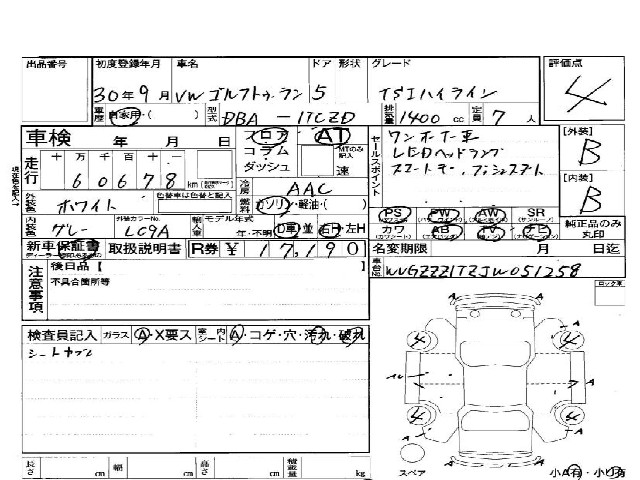 出品番号 初度登録年月 車名 ドア 形状 グレード 評価点
30年9月 VW ゴルフトゥーラン 5 TSIハイライン 4
車歴 自家用・( ) 型式 DBA - 1TCZD 排気量 1400 cc 定員 7 人
車検 年 月 日 シフト フロア AT
コラム MTのみ記入
ダッシュ 速
セールスポイント ワンオーナー車
LEDヘッドランプ
スマートキー、プッシュスタート
[外装] B
[内装] B
走行 十 万 千 百 十 一
60678 km
冷房 AAC
外装色 ホワイト 色替車は色替と記入
燃料 ガソリン・軽油・( )
PS PW AW SR
カワ AB TV ナビ
純正品のみ丸印
内装色 グレー 外装カラーNo. LC9A 輸入車 モデル年式 年・不明 D車 並 右H・左H
新車保証書 取扱説明書 R券 ¥ 17,190 名変期限 月 日迄
車台No. WVGZZZ1TZJW051258
注意事項 後日品 [
不具合箇所等
ロック車
検査員記入 ガラス A・X要ス 室内シート A・コゲ・穴・汚れ・破れ
シートヤブレ
4 4
A A
4 4
A A
長さ cm 幅 cm 高さ cm 積載量 kg
スペア 小A有・小U有